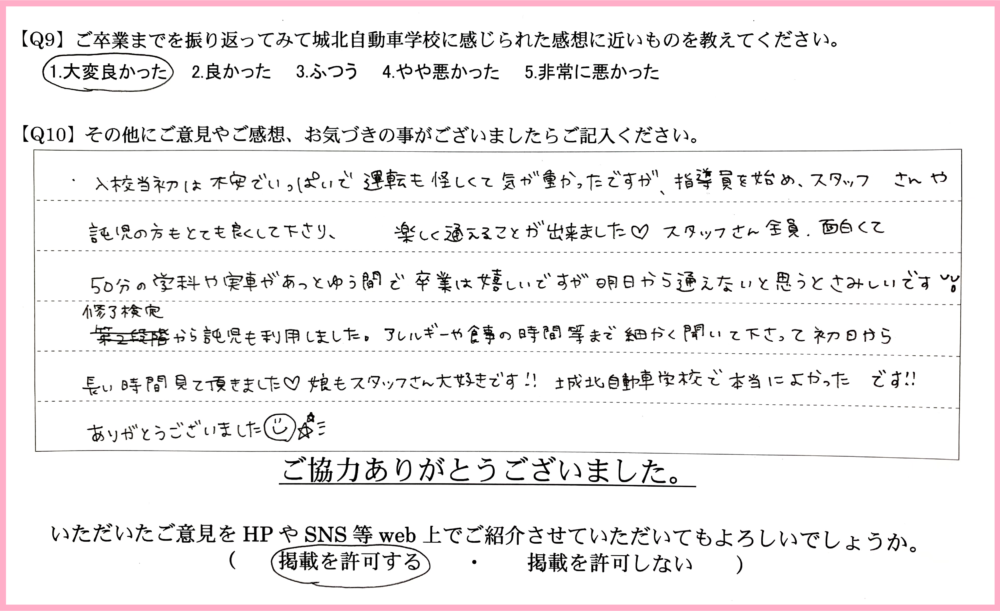 【Q9】ご卒業までを振り返ってみて城北自動車学校に感じられた感想に近いものを教えてください。
1.大変良かった 2.良かった 3.ふつう 4.やや悪かった 5.非常に悪かった
【Q10】その他にご意見やご感想、お気づきの事がございましたらご記入ください。
入校当初は不安でいっぱいで運転も怪しくて気が重かったですが、指導員を始め、スタッフさんや
託児の方もとても良くして下さり、楽しく通えることが出来ました♡スタッフさん全員、面白くて
50分の学科や実車があっとゆう間で卒業は嬉しいですが明日から通えないと思うとさみしいです
修了検定
第2段階から託児も利用しました。アレルギーや食事の時間等まで細かく聞いて下さって初日から
長い時間見て頂きました♡娘もスタッフさん大好きです!!城北自動車学校で本当によかったです!!
ありがとうございました
ご協力ありがとうございました。
いただいたご意見をHPやSNS等web上でご紹介させていただいてもよろしいでしょうか。
( 掲載を許可する ・ 掲載を許可しない )